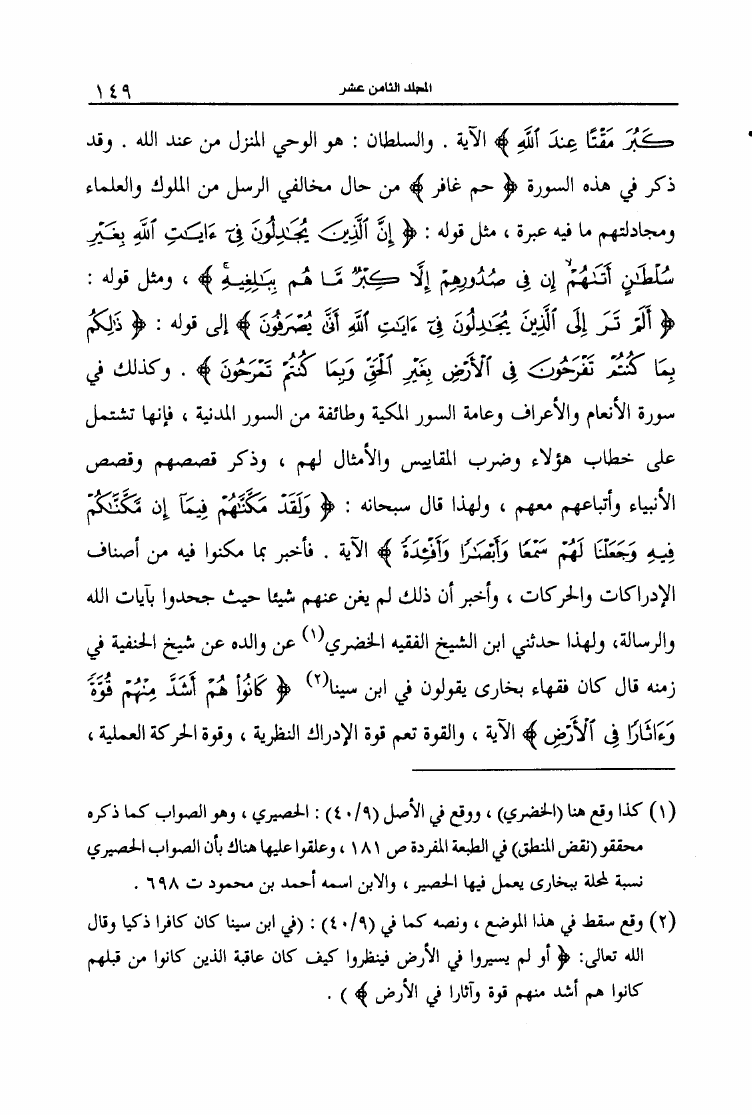 المجلد الثامن عشر ١٤٩
كَبُرَ مَقْتًا عِندَ ٱللَّهِ ﴾ الآية . والسلطان : هو الوحي المنزل من عند الله . وقد
ذكر في هذه السورة ﴿ حم غافر ﴾ من حال مخالفي الرسل من الملوك والعلماء
ومجادلتهم ما فيه عبرة ، مثل قوله : ﴿ إِنَّ ٱلَّذِينَ يُجَٰدِلُونَ فِىٓ ءَايَٰتِ ٱللَّهِ بِغَيْرِ
سُلْطَٰنٍ أَتَىٰهُمْ ۙ إِن فِى صُدُورِهِمْ إِلَّا كِبْرٌ مَّا هُم بِبَٰلِغِيهِ ۚ ﴾ ، ومثل قوله :
﴿ أَلَمْ تَرَ إِلَى ٱلَّذِينَ يُجَٰدِلُونَ فِىٓ ءَايَٰتِ ٱللَّهِ أَنَّىٰ يُصْرَفُونَ ﴾ إلى قوله : ﴿ ذَٰلِكُم
بِمَا كُنتُمْ تَفْرَحُونَ فِى ٱلْأَرْضِ بِغَيْرِ ٱلْحَقِّ وَبِمَا كُنتُمْ تَمْرَحُونَ ﴾ . وكذلك في
سورة الأنعام والأعراف وعامة السور المكية وطائفة من السور المدنية ، فإنها تشتمل
على خطاب هؤلاء وضرب المقاييس والأمثال لهم ، وذكر قصصهم وقصص
الأنبياء وأتباعهم معهم ، ولهذا قال سبحانه : ﴿ وَلَقَدْ مَكَّنَّٰهُمْ فِيمَآ إِن مَّكَّنَّٰكُمْ
فِيهِ وَجَعَلْنَا لَهُمْ سَمْعًا وَأَبْصَٰرًا وَأَفْـِٔدَةً ﴾ الآية . فأخبر بما مكنوا فيه من أصناف
الإدراكات والحركات ، وأخبر أن ذلك لم يغن عنهم شيئا حيث جحدوا بآيات الله
والرسالة، ولهذا حدثني ابن الشيخ الفقيه الخضري(١) عن والده عن شيخ الحنفية في
زمنه قال كان فقهاء بخارى يقولون في ابن سينا(٢) ﴿ كَانُوا۟ هُمْ أَشَدَّ مِنْهُمْ قُوَّةً
وَءَاثَارًا فِى ٱلْأَرْضِ ﴾ الآية ، والقوة تعم قوة الإدراك النظرية ، وقوة الحركة العملية ،
(١) كذا وقع هنا (الخضري) ، ووقع في الأصل (٤٠/٩) : الحصيري ، وهو الصواب كما ذكره
محققو (نقض المنطق) في الطبعة المفردة ص ١٨١ ، وعلقوا عليها هناك بأن الصواب الحصيري
نسبة لمحلة ببخارى يعمل فيها الحصير ، والابن اسمه أحمد بن محمود ت ٦٩٨ .
(٢) وقع سقط في هذا الموضع ، ونصه كما في (٤٠/٩) : (في ابن سينا كان كافرا ذكيا وقال
الله تعالى: ﴿ أو لم يسيروا في الأرض فينظروا كيف كان عاقبة الذين كانوا من قبلهم
كانوا هم أشد منهم قوة وآثارا في الأرض ﴾ ) .